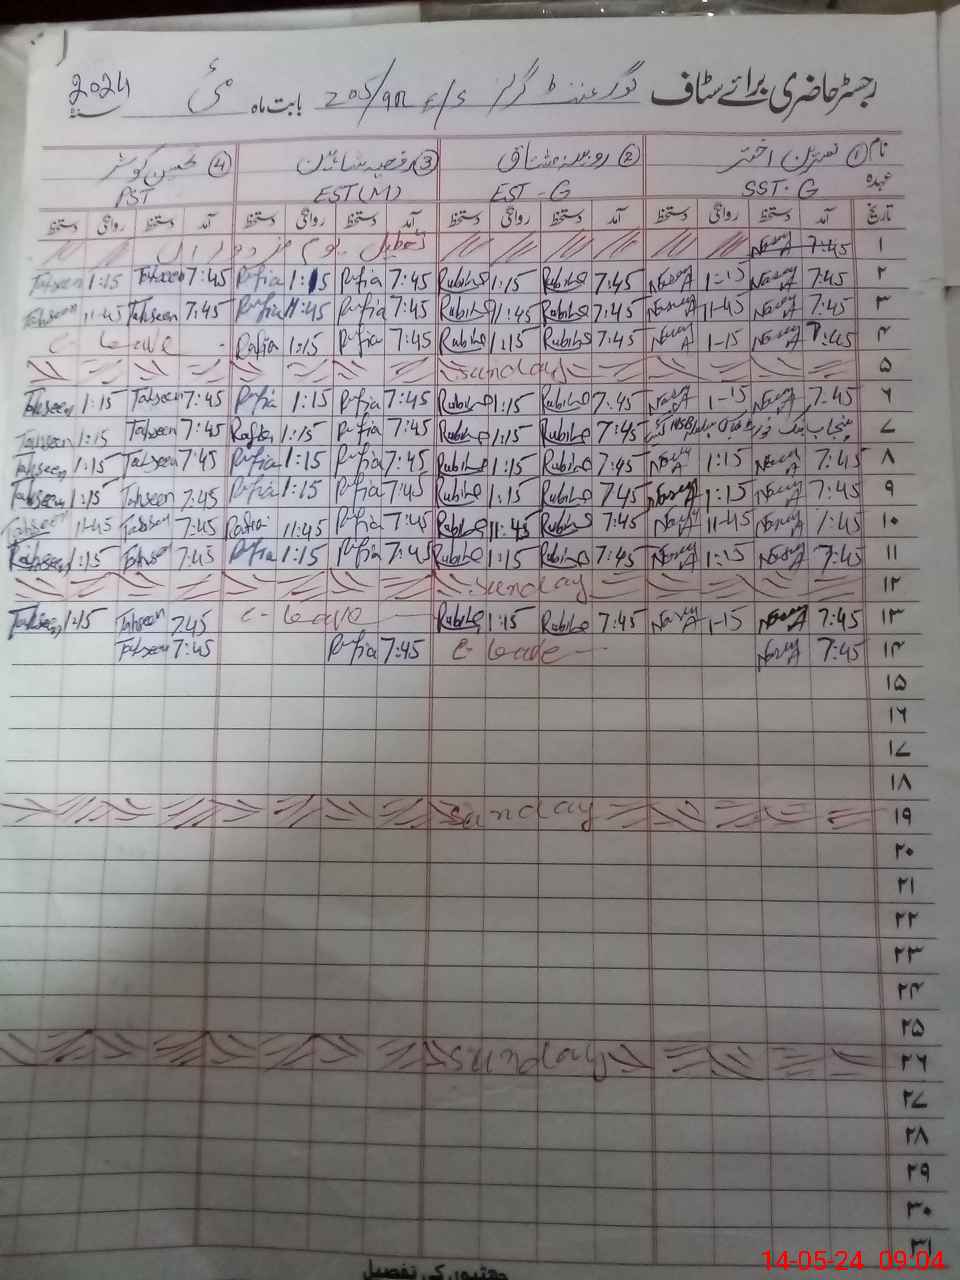 رجسٹر حاضری برائے سٹاف گورنمنٹ گرلز E/S 205/9R بابت ماہ مئی 2024
نام ① نسرین اختر ② روبینہ مشتاق ③ رفعیہ شاہین ④ تحسین کوثر
عہدہ SST-G EST-G EST(M) PST
تاریخ آمد دستخط روانگی دستخط آمد دستخط روانگی دستخط آمد دستخط روانگی دستخط آمد دستخط روانگی دستخط
۱ 7:45 تعطیل یوم مزدوراں
۲ 7:45 1-15 7:45 Rubina 1:15 Rubina 7:45 Rafia 1:15 Rafia 7:45 Tahseen 1:15 Tahseen
۳ 7:45 11-45 7:45 Rubina 11:45 Rubina 7:45 Rafia 11:45 Rafia 7:45 Tahseen 11-45 Tahseen
۴ 7:45 1-15 7:45 Rubina 1:15 Rubina 7:45 Rafia 1:15 Rafia C- Leave
۵ Sunday
۶ 7:45 1-15 7:45 Rubina 1:15 Rubina 7:45 Rafia 1:15 Rafia 7:45 Tahseen 1:15 Tahseen
۷ 7:45 Rubina 1:15 Rubina 7:45 Rafia 1:15 Rafia 7:45 Tahseen 1:15 Tahseen
۸ 7:45 1:15 7:45 Rubina 1:15 Rubina 7:45 Rafia 1:15 Rafia 7:45 Tahseen 1:15 Tahseen
۹ 7:45 1:15 7:45 Rubina 1:15 Rubina 7:45 Rafia 1:15 Rafia 7:45 Tahseen 1:15 Tahseen
۱۰ 7:45 11-45 7:45 Rubina 11:45 Rubina 7:45 Rafia 11:45 Rafia 7:45 Tahseen 11-45 Tahseen
۱۱ 7:45 1:15 7:45 Rubina 1:15 Rubina 7:45 Rafia 1:15 Rafia 7:45 Tahseen 1:15 Tahseen
۱۲ Sunday
۱۳ 7:45 1-15 7:45 Rubina 1:15 Rubina C- Leave 7:45 Tahseen 1:15 Tahseen
۱۴ 7:45 C Leave 7:45 Rafia 7:45 Tahseen
۱۵
۱۶
۱۷
۱۸
۱۹ Sunday
۲۰
۲۱
۲۲
۲۳
۲۴
۲۵
۲۶ Sunday
۲۷
۲۸
۲۹
۳۰
۳۱
چھٹیوں کی تفصیل
14-05-24 09:04